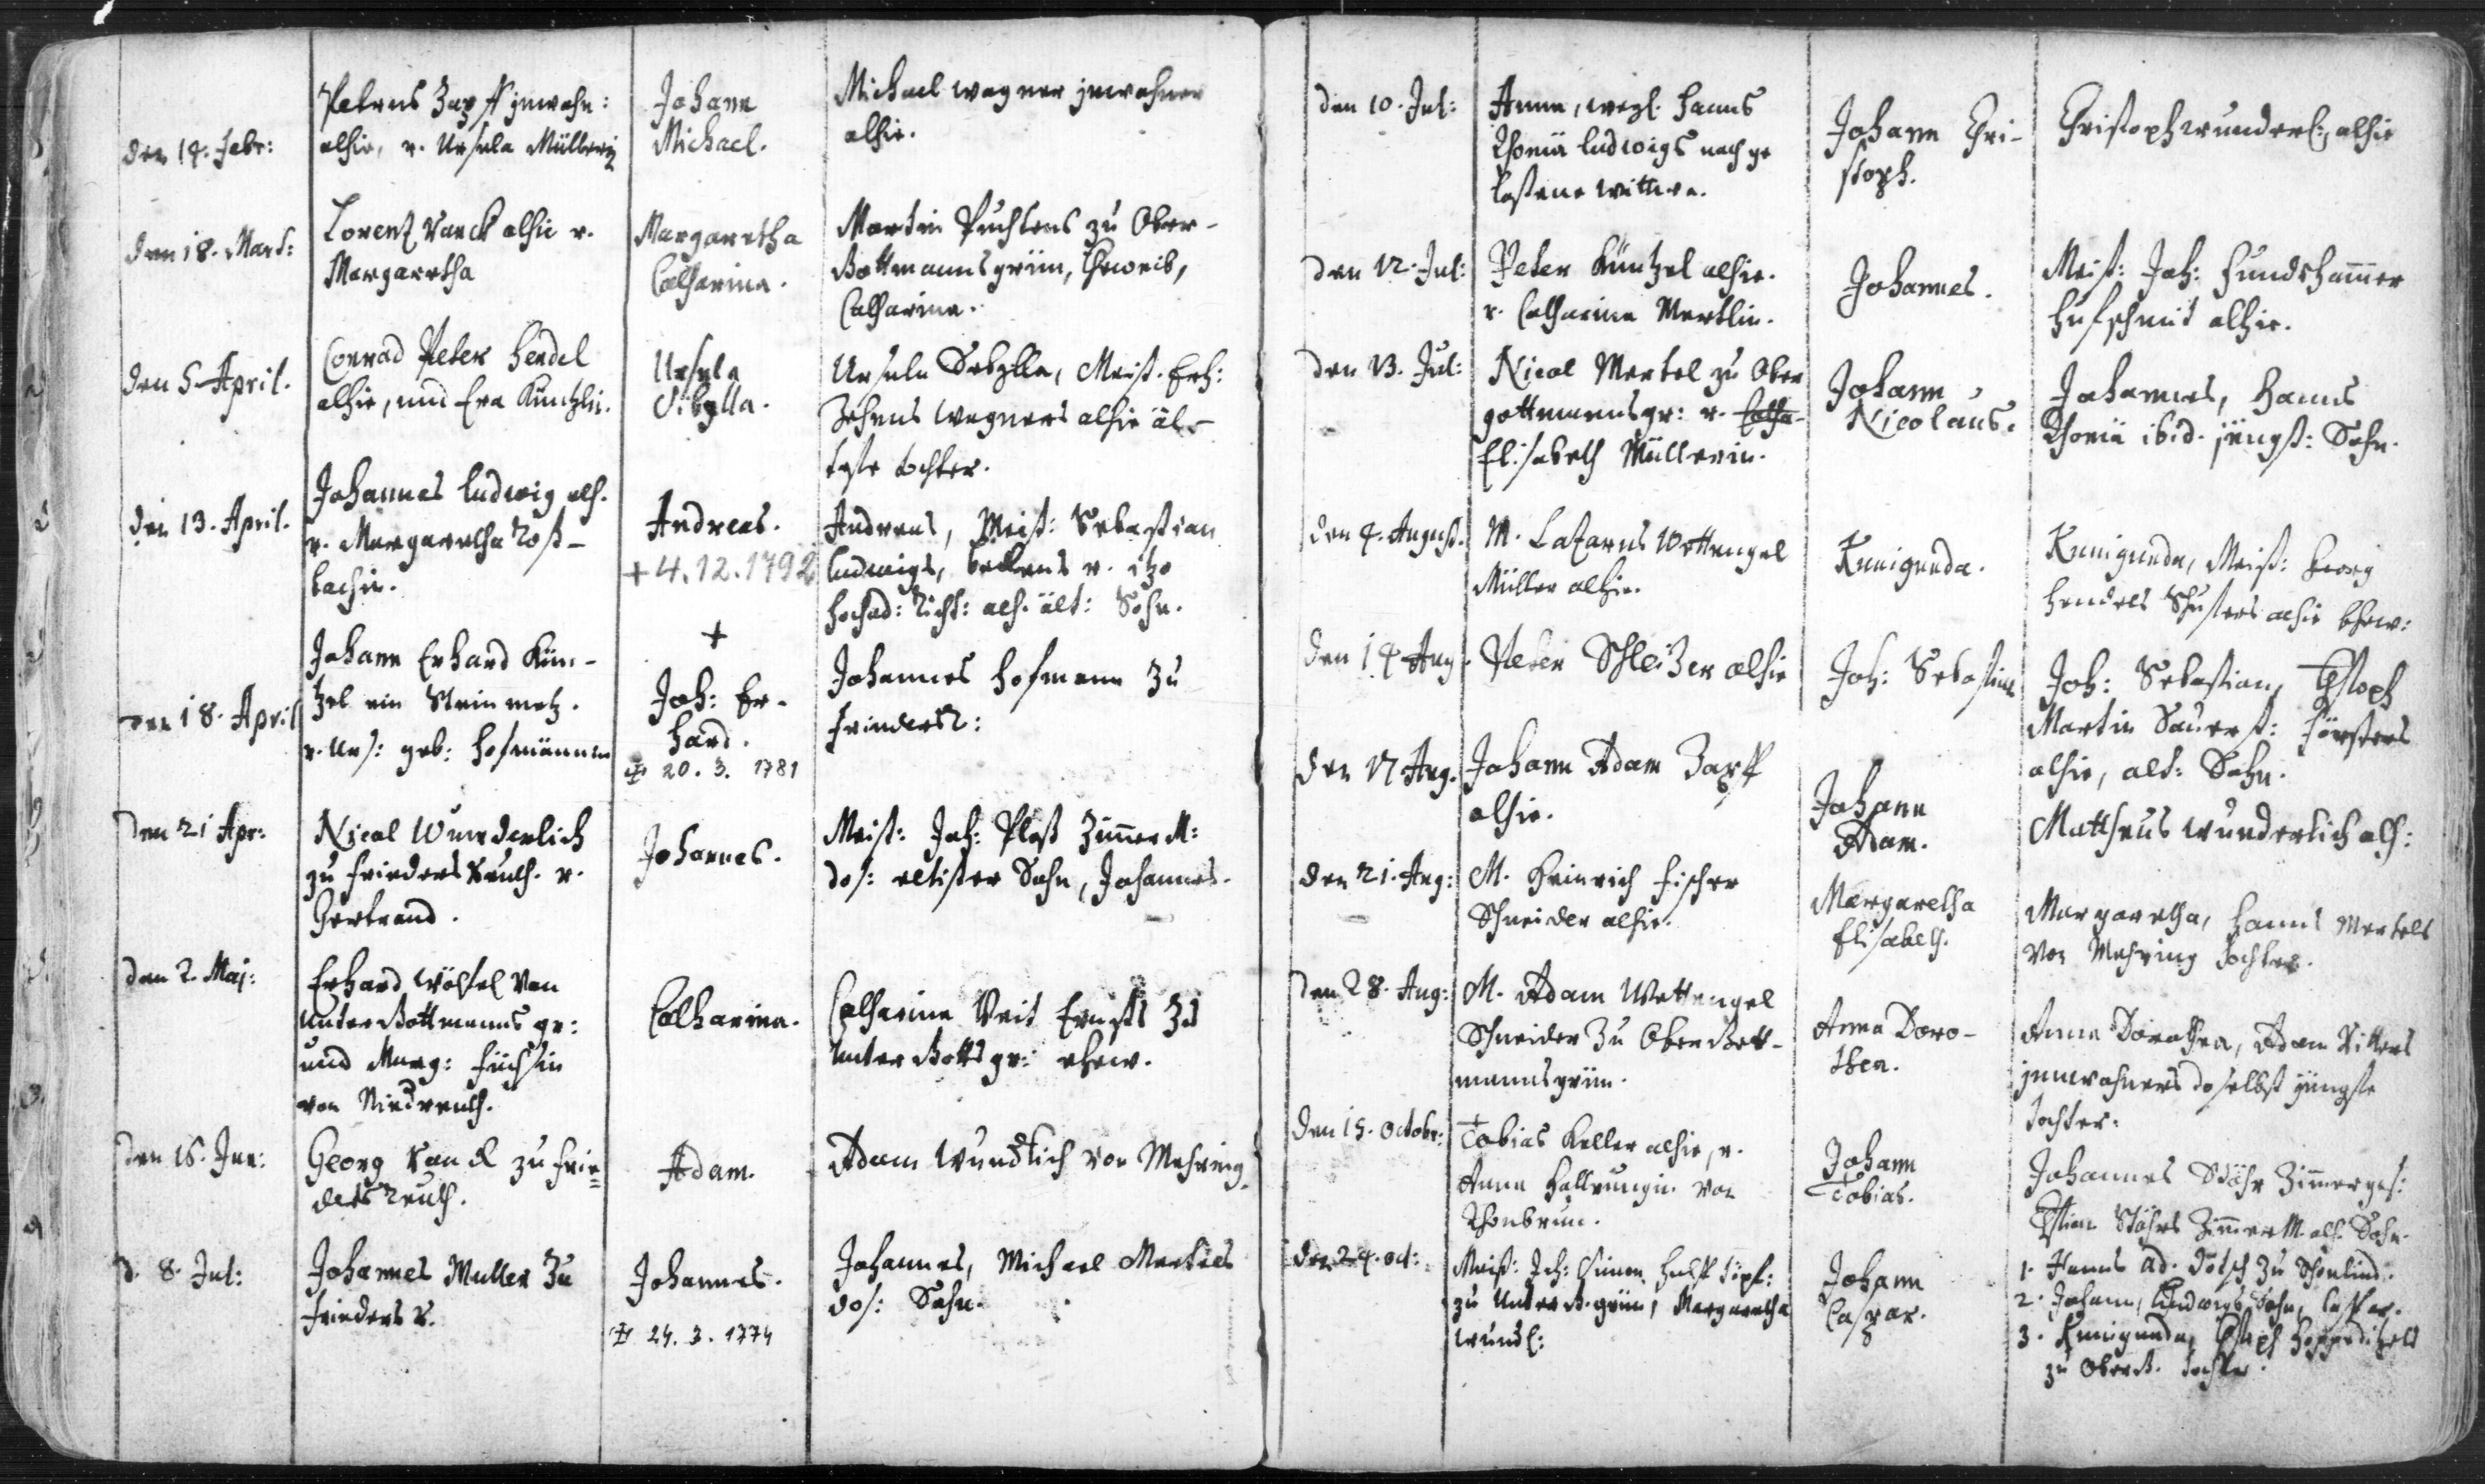 den 14. Febr:
Petrus Zapff inwohn:
alhie, v. Ursula Müllerin
Johann
Michael.
Michael wagner inwohner
alhie.
den 18. Mart:
Lorentz Vanck alhie v.
Margaretha
Margaretha
Catharina.
Martin Puchtens zu Ober-
Gottmannsgrün, Eheweib,
Catharina.
den 5. April.
Conrad Peter Hendel
alhie, und Eva Küntzlin.
Ursula
Sibylla.
Ursula Sibylla, Meist. Erh:
wagners alhie äl-
teste tochter.
den 13. April.
Johannes Ludwig alh.
v. Margaretha Roß-
bachin.
Andreas.
+ 4.12.1792
Andreas, Meist: Sebastian
Ludwigs, beckens v. itzo
hochad: Richt: alh. ält: Sohn.
den 18. April
Johann Erhard Kün-
tzel ein Steinmetz.
v. Urs: geb: Hofmännin
+
Joh: Er-
hard.
20. 3. 1781
Johannes Hofmann zu
Friedersr:
den 21 Apr:
Nicol Wunderlich
zu Friedersreuth. v.
Gertraud.
Johannes.
Meist: Joh: Ploß Zimmer M:
das: eltister Sohn, Johannes.
den 2. Maj:
Erhard Wölfel von
Unter Gottmanns gr:
und Marg: Füchsin
von Niedreuth.
Catharina.
Catharina Veit Ernsts zu
Unter Gotts gr: ehew.
den 16. Jun:
Georg Vanck zu Frie=
dersreuth.
Adam.
Adam Wundlich von Mehring
d. 8. Jul:
Johannes Müller zu
Frieders r.
Johannes.
24. 3. 1774
Johannes, Michael Mertels
das: Sohn.
den 10. Jul:
Anna, weyl. Hanns
Thomä Ludwigs nach ge
laßene Wittwe.
Johann Chri-
stoph.
Christoph wunderl:, alhie
den 12. Jul:
Peter Küntzel alhie.
v. Catharina Mertlin.
Johannes.
Meist: Joh: Hundshammer
Hufschmit alhie.
den 13. Jul:
Nicol Mertel zu Ober
gottmannsgr: v. Catha-
Elisabeth Müllerin.
Johann
Nicolaus.
Johannes, Hanns
Thomä ibid. jüngst: Sohn.
den 4. August.
M. Lazarus Wettengel
Müller alhie.
Kunigunda.
Kunigunda, Meist: Georg
Hendels Schusters alhie Ehew:
den 14 Aug.
Peter Schleitzer alhie
Joh: Sebastian
Joh: Sebastian, Chstoph
Martin Försters
alhie, alt: Sohn.
den 17 Aug.
Johann Adam Zapff
alhie.
Johann
Adam.
Mattheus wunderlich alh:
den 21. Aug:
M. Heinrich Fischer
Schneider alhie.
Margaretha
Elisabeth.
Margaretha, Hanns Mertels
von Mehring Tochter.
den 28. Aug:
M. Adam Wettengel
Schneider zu Ober Gott-
mannsgrün.
Anna Doro-
thea.
Anna Dorothea, Adam Ritters
innwohners daselbst jüngste
Tochter.
den 15. Octobr:
Tobias Keller alhie, v.
Anna von
Thonbrun.
Johann
Tobias.
Johannes Stöhr Zimmerges:
Chstian Stöhrs Zimmer M. alh. Sohn.
den 24. Oct:
Meist: Joh: Simon
zu Unter G. grün, Margaretha
wundl:
Johann
Caspar.
1. Hanns Ad. Dötsch zu Schönlind.
2. Johann, Ludwigs Sohn,
3. Kunigunda, Chstoph
zu Ober G. Tochter.